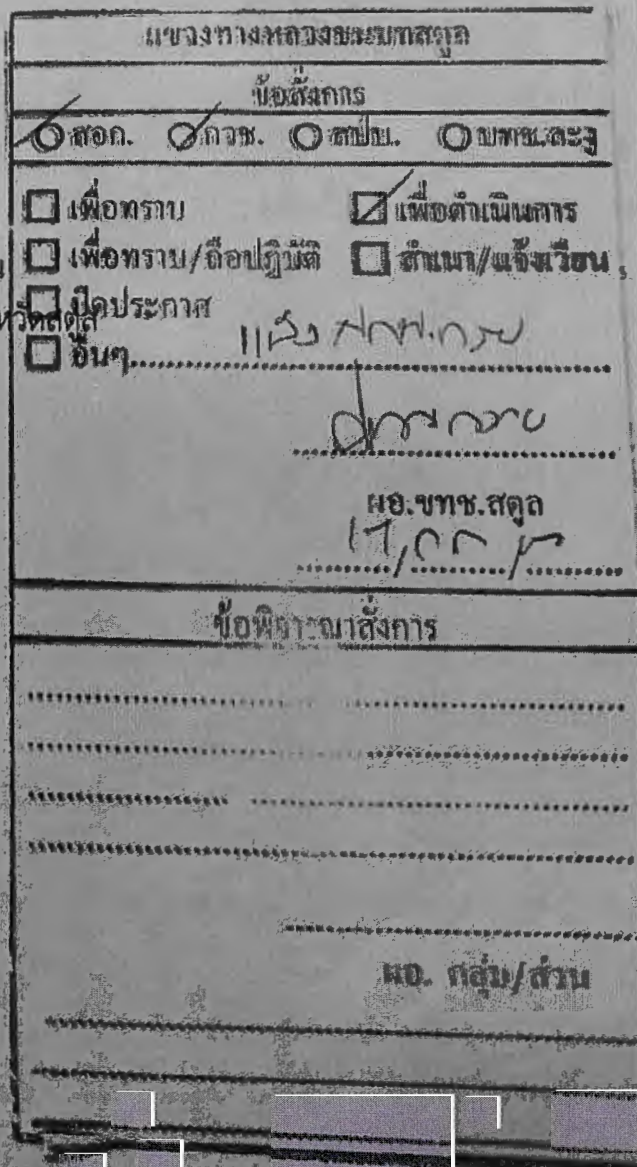 แขวงทางหลวงชนบทสตูล
ข้อสั่งการ
สอก. กวช. สปบ. บทช.ละงู
เพื่อทราบ เพื่อดำเนินการ
เพื่อทราบ/ถือปฏิบัติ สำเนา/แจ้งเวียน
ปิดประกาศ
หวัดสตูล
อื่นๆ
ผอ.ขทช.สตูล
ข้อพิจารณาสั่งการ
ผอ. กลุ่ม/ส่วน